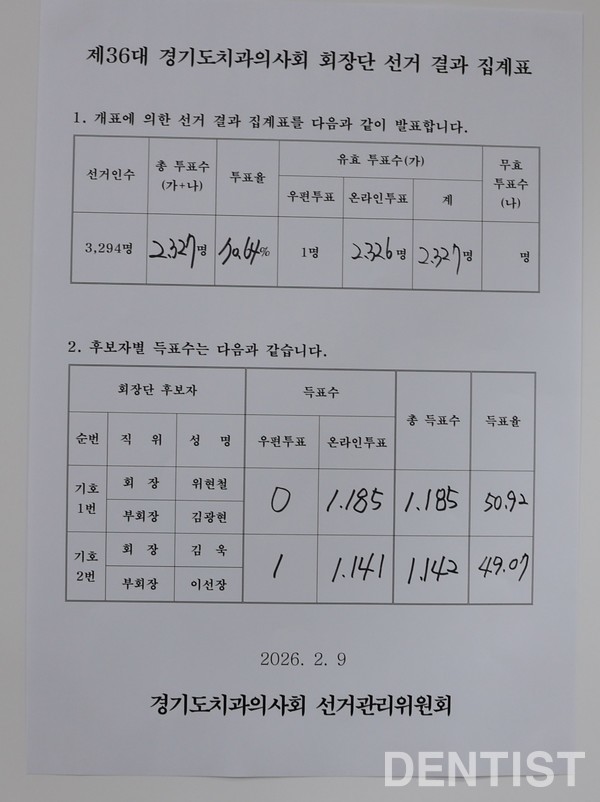 제36대 경기도치과의사회 회장단 선거 결과 집계표
1. 개표에 의한 선거 결과 집계표를 다음과 같이 발표합니다.
선거인수 총 투표수 (가+나) 투표율 유효 투표수(가) 무효 투표수 (나)
우편투표 온라인투표 계
3,294명 2.327명 70.64% 1명 2.326명 2.327명 명
2. 후보자별 득표수는 다음과 같습니다.
회장단 후보자 득표수 총 득표수 득표율
순번 직 위 성 명 우편투표 온라인투표
기호 1번 회 장 위현철 0 1.185 1.185 50.92
부회장 김광현
기호 2번 회 장 김 욱 1 1.141 1.142 49.07
부회장 이선장
2026. 2. 9
경기도치과의사회 선거관리위원회
DENTIST